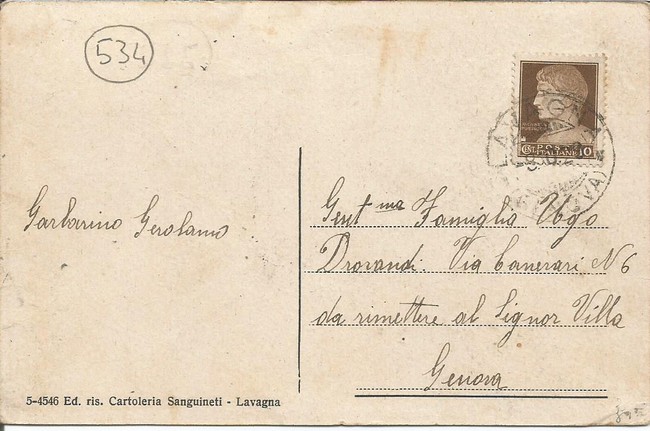 534
POSTE
ITALIANE
CENT. 10
LAVAGNA
(GENOVA)
Garbarino Gerolamo
Gent ma Famiglia Ugo
Drovandi. Via Canevari N 6
da rimettere al Signor Villa
Genova
5-4546 Ed. ris. Cartoleria Sanguineti - Lavagna